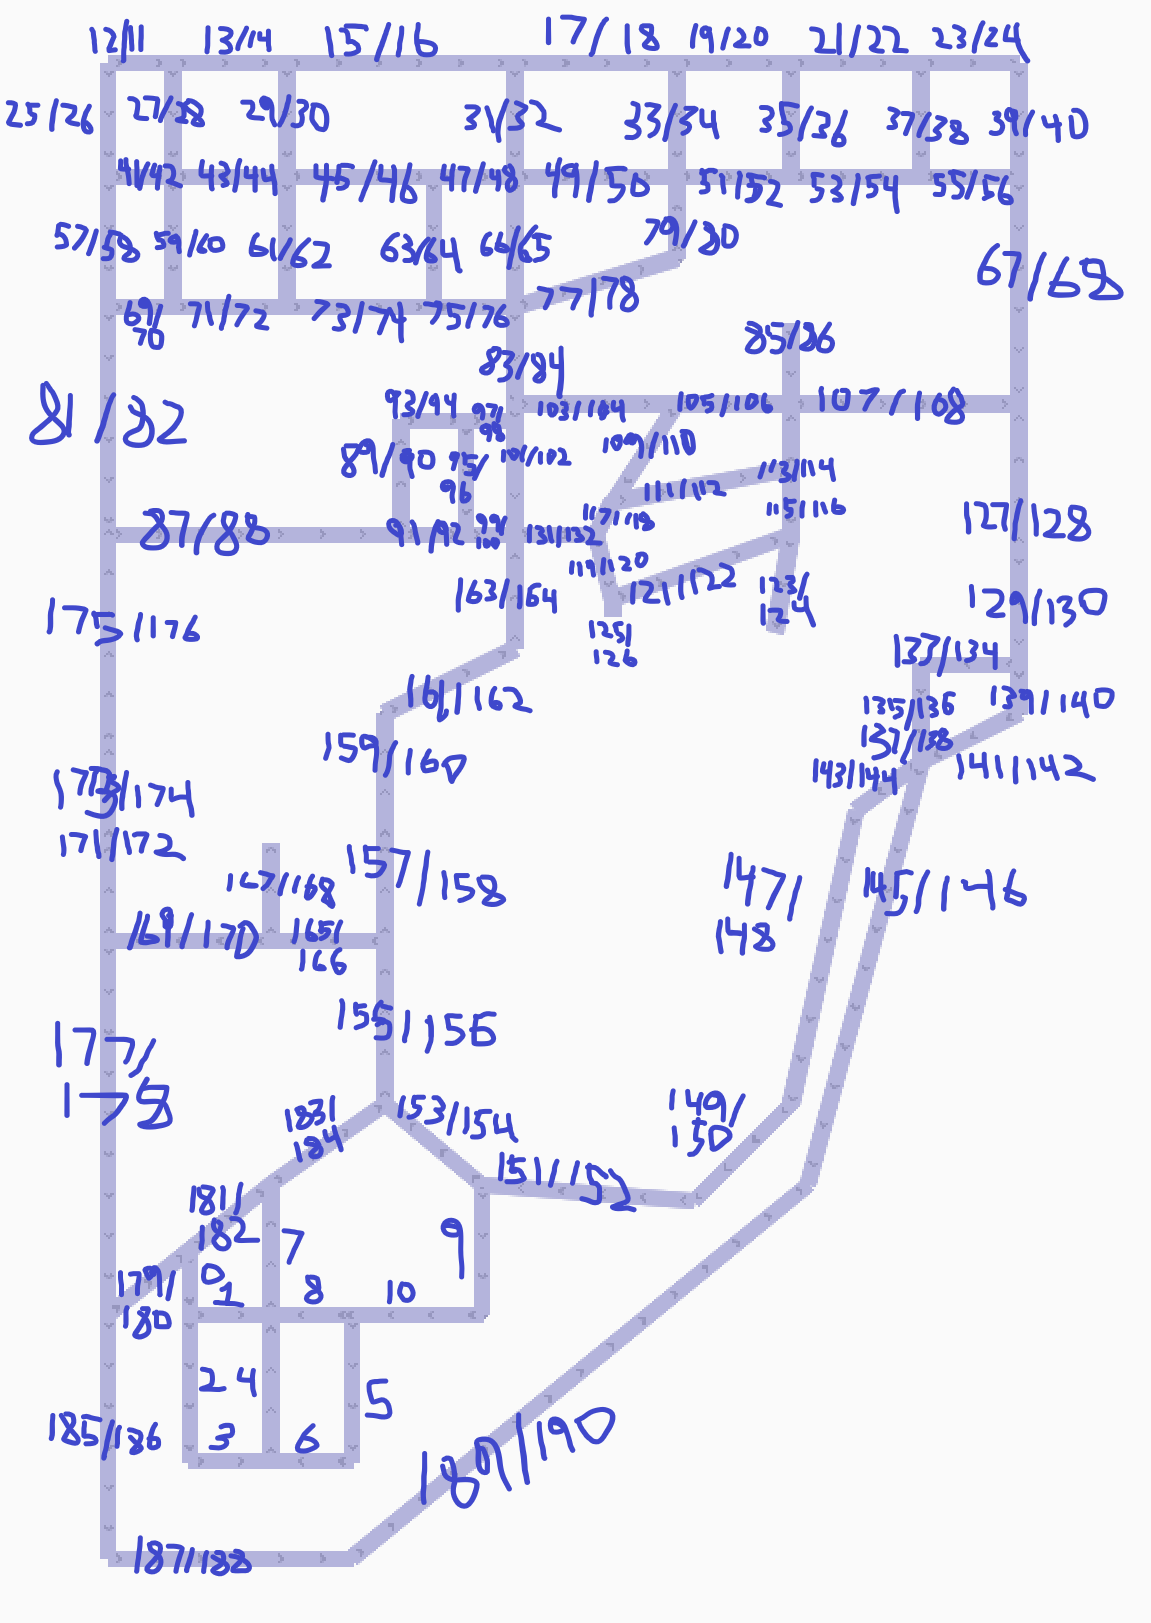 12/11 13/14 15/16 17/18 19/20 21/22 23/24
25/26 27/28 29/30 31/32 33/34 35/36 37/38 39/40
41/42 43/44 45/46 47/48 49/50 51/52 53/54 55/56
57/58 59/60 61/62 63/64 66/65 79/80 67/68
69/ 71/72 73/74 75/76 77/78
70
85/86
83/84
81/82 93/94 97/ 103/104 105/106 107/108
98
89/90 95/ 101/102 109/110
96 111/112 113/114
87/88 91/92 99/ 131/132 117/118 115/116 127/128
100
163/164 119/120 121/122 123/ 129/130
124
175/176 125/
126
133/134
161/162 135/136 139/140
159/160 137/138
143/144 141/142
173/174
171/172
157/158 147/ 145/146
167/168 148
169/170 165/
166
155/156
177/
178
183/ 153/154 149/
184 150
151/152
181/
182 7 9
179/ 0 1 8 10
180
2 4 5
185/186 3 6
189/190
187/188